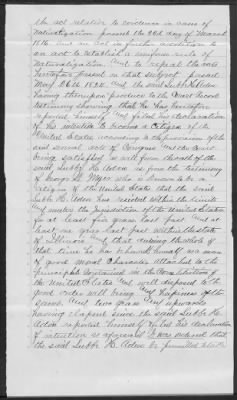 the act relative to evidence in case of
naturalization passed the 22d day of March
1816 and an act in further addition to
an act to establish a uniform rule of
naturalization and to repeal the acts
heretofore passed on that subject passed
May 26th 1824 And the said Lubbe H. Aden
having thereupon produced to the Court record
testimony showing that he has heretofore
reported himself and filed his declaration
of his intention to become a Citizen of the
United States according to the provisions of the
said several acts of Congress and the Court
being satisfied as well from the oath of the
said Lubbe H. Aden as from the testimony
of George H. who is known to be a
citizen of the United States that the said
Lubbe H. Aden has resided within the limits
and under the jurisdiction of the United States
for at least five years last past and at
least one year last past within the State
of Illinois and that during the whole of
that time he has behaved himself as a man
of good moral Character attached to the
principles contained in the Constitution of
the United States and well disposed to the
good order well being and happiness of the
same and two years and upwards
having elapsed since the said Lubbe H.
Aden reported himself and filed his declaration
of intention as aforesaid It was ordered that
the said Lubbe H. Aden be permitted to take